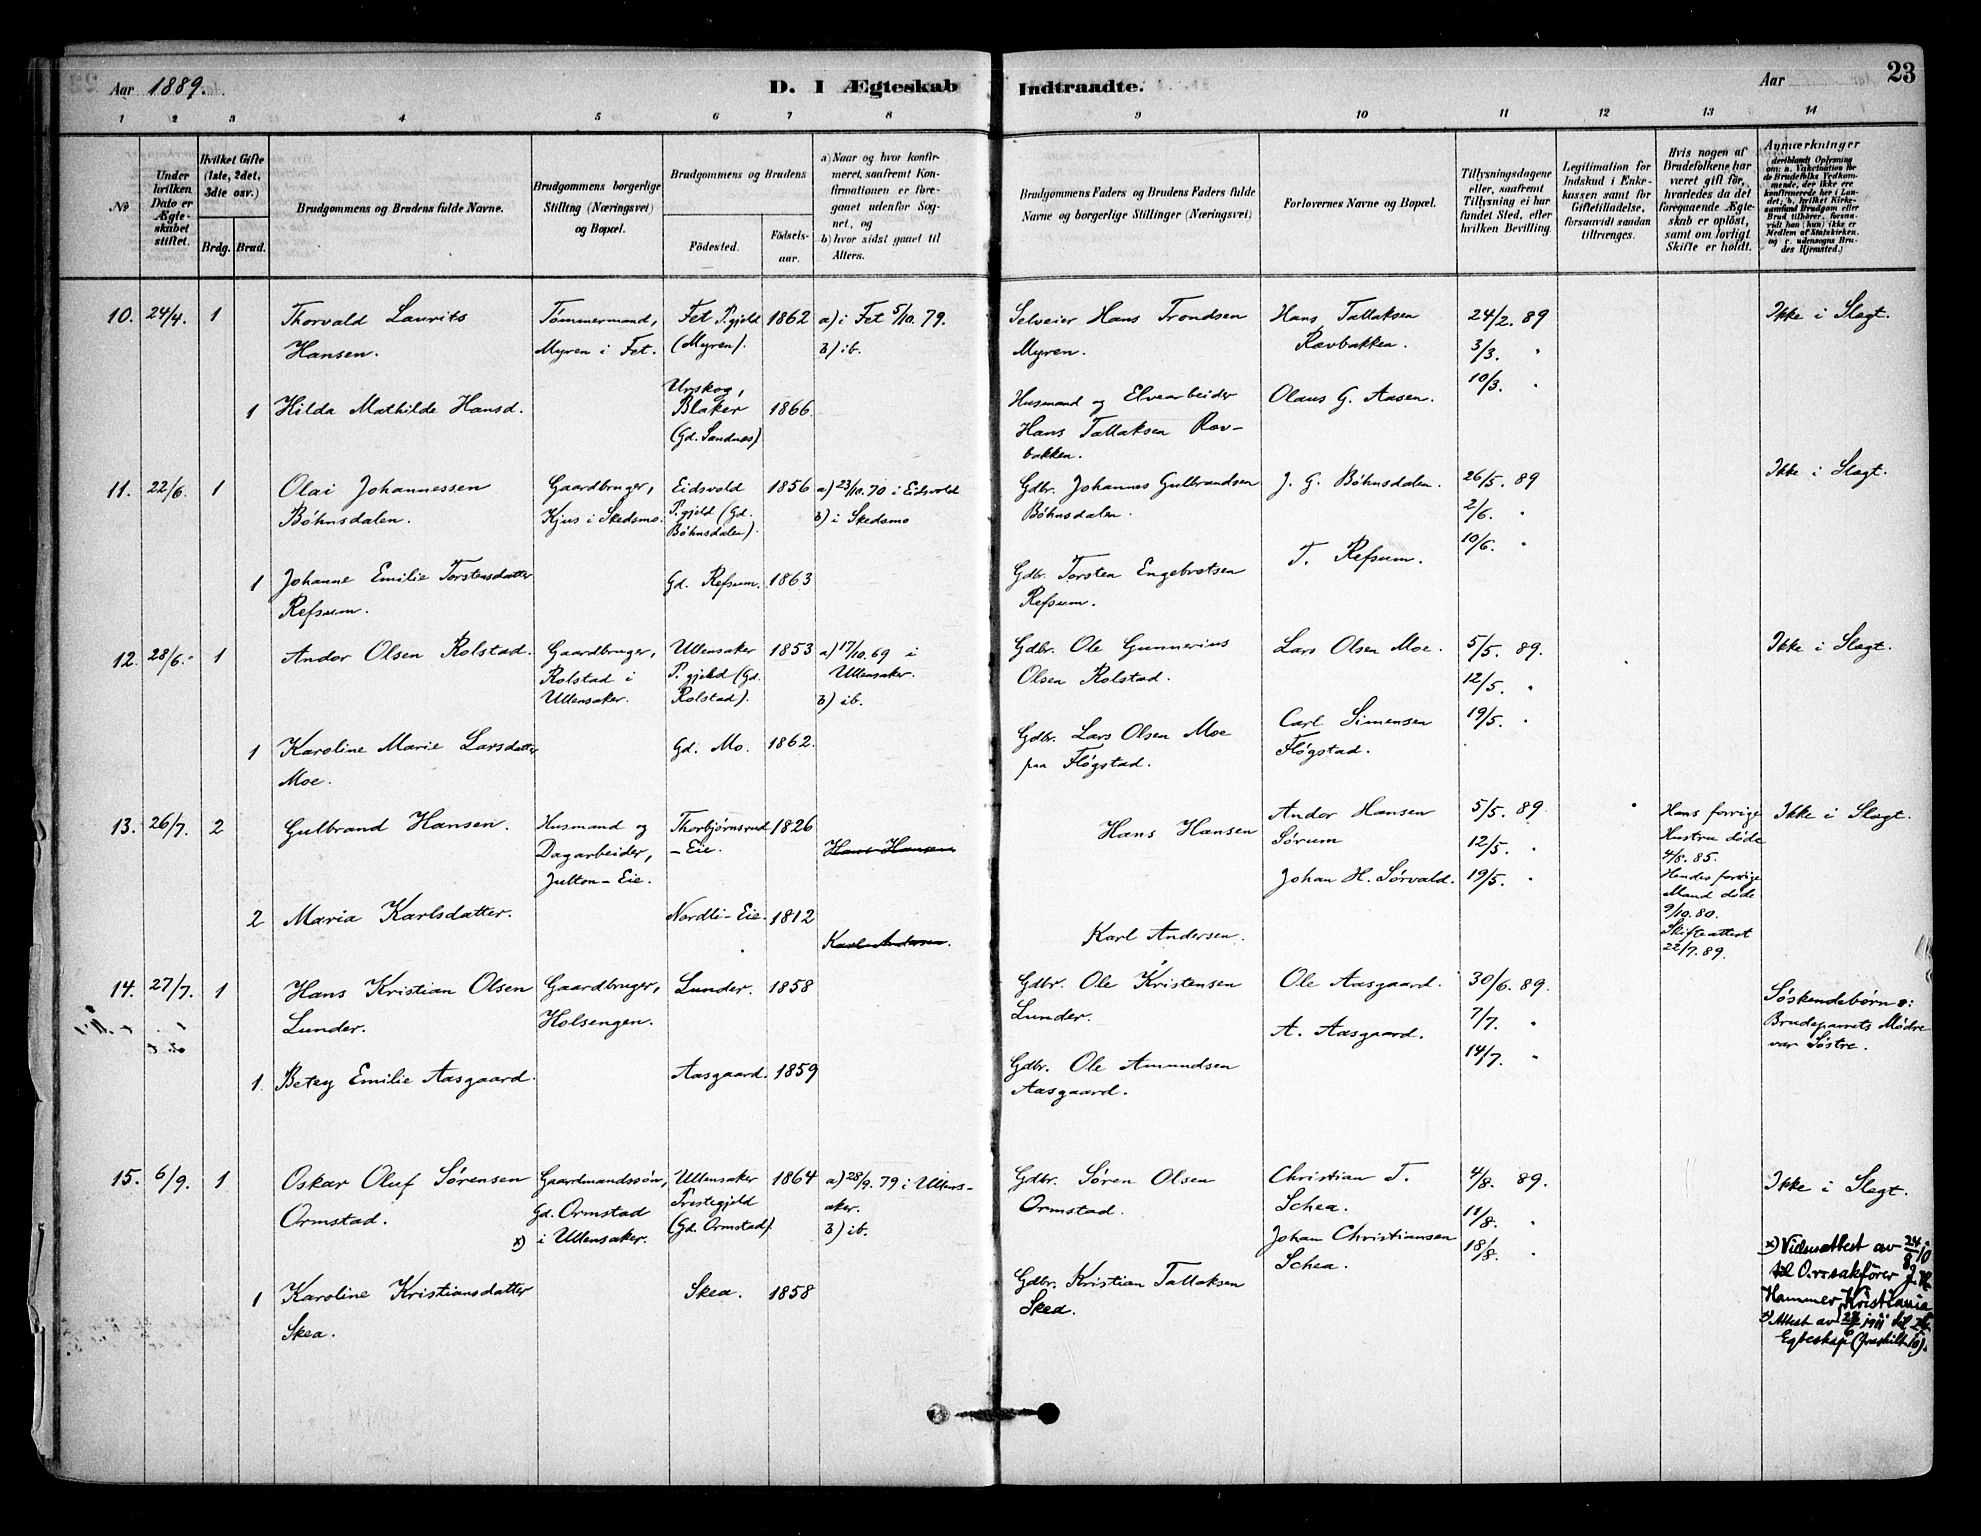 Aar 1889.
D. I Ægteskab Indtraadte.
Aar
23
1 2 3 4 5 6 7 8 9 10 11 12 13 14
No
Under hvilken Dato er Ægteskabet stiftet.
Hvilket Gifte (1ste, 2det, 3die osv.)
Brdg. Brud.
Brudgommens og Brudens fulde Navne.
Brudgommens borgerlige Stilling (Næringsvei) og Bopæl.
Brudgommens og Brudens
Födested. Födselsaar.
a) Naar og hvor konfirmeret, saafremt Konfirmationen er foregaaet udenfor Sognet, og
b) hvor sidst gaaet til Alters.
Brudgommens Faders og Brudens Faders fulde Navne og borgerlige Stillinger (Næringsvei)
Forlovernes Navne og Bopæl.
Tillysningsdagene eller, saafremt Tillysning ei har fundet Sted, efter hvilken Bevilling.
Legitimation for Indskud i Enkekassen samt for Giftetilladelse, forsaavidt saadan tiltrænges.
Hvis nogen af Brudefolkene har været gift för, hvorledes da det foregaaende Ægteskab er oplöst, samt om lovligt Skifte er holdt.
Anmærkninger (deriblandt Oplysning om: a. Vakcination for de Brudefolks Vedkommende, der ikke ere konfirmerede her i Landet; b. hvilket Kirkesamfund Brudgom eller Brud tilhörer, forsaavidt han (hun) ikke er Medlem af Statskirken, og c. udensogns Brudes Hjemsted.)
10. 24/4. 1 Thorvald Laurits Hansen.
Tømmermand, Myren i Fet.
Fet P.gjeld (Myren). 1862
a) i Fet 5/10. 79.
b) ib.
Selveier Hans Trondsen Myren.
Hans Tallaksen Rævbakken.
24/2. 89
3/3. "
10/3. "
Ikke i Slegt.
1 Hilda Mathilde Hansd.
Urskog, Blaker (Gd. Sandnes) 1866.
Husmand og Elvearbeider Hans Tallaksen Ravbakken.
Olaus G. Aasen.
11. 22/6. 1 Olai Johannessen Bøhnsdalen.
Gaardbruger, Kjus i Skedsmo.
Eidsvold P.gjeld (Gd. Bøhnsdalen). 1856
a) 23/10. 70 i Eidsvold
b) i Skedsmo
Gdbr. Johannes Gulbrandsen Bøhnsdalen.
J. G. Bøhnsdalen.
26/5. 89
2/6. "
10/6. "
Ikke i Slegt.
1 Johanne Emilie Torstensdatter Refsum.
Gd. Refsum. 1863
Gdbr. Torsten Engebretsen Refsum.
T. Refsum.
12. 28/6. 1 Andor Olsen Rolstad.
Gaardbruger, Rolstad i Ullensaker.
Ullensaker P.gjeld (Gd. Rolstad). 1853
a) 17/10. 69 i Ullensaker.
b) ib.
Gdbr. Ole Gunnerius Olsen Rolstad.
Lars Olsen Moe.
5/5. 89.
12/5. "
19/5. "
Ikke i Slegt.
1 Karoline Marie Larsdatter Moe.
Gd. Mo. 1862.
Gdbr. Lars Olsen Moe paa Fløgstad.
Carl Simensen Fløgstad.
13. 26/7. 2 Gulbrand Hansen.
Husmand og Dagarbeider, Julton-Eie.
Thorbjørnsrud-Eie. 1826
Hans Hansen
Hans Hansen
Andor Hansen Sørum
Johan H. Sørvald.
5/5. 89.
12/5. "
19/5. "
Hans forrige Hustru døde 4/8. 85.
Hendes forrige Mand døde 9/10. 80.
Skifteattest 22/7. 89.
Ikke i Slegt.
2 Maria Karlsdatter.
Nordli-Eie. 1812
Karl Andersen.
Karl Andersen.
14. 27/7. 1 Hans Kristian Olsen Lunder.
Gaardbruger, Holsengen.
Lunder. 1858
Gdbr. Ole Kristensen Lunder.
Ole Aasgaard.
A. Aasgaard.
30/6. 89.
7/7. "
14/7. "
Søskendebørn o: Brudeparrets Mødre var Søstre.
1. Betey Emilie Aasgaard.
Aasgaard. 1859
Gdbr. Ole Amundsen Aasgaard.
15. 6/9. 1 Oskar Oluf Sørensen Ormstad.
Gaardmandssøn, Gd. Ormstad x) i Ullensaker.
Ullensaker Prestegjeld (Gd. Ormstad). 1864
a) 28/9. 79 i Ullensaker.
b) ib.
Gdbr. Sören Olsen Ormstad.
Christian T. Schea.
Johan Christiansen Schea.
4/8. 89.
11/8. "
18/8. "
Ikke i Slegt.
1 Karoline Kristiansdatter Skea.
Skea. 1858
Gdbr. Kristian Tallaksen Skea.
x) Vielsesattest av 24/8 10
til O.rrsakfører
Hammer, Kristiania
Attest av 1911 til
Egteskap